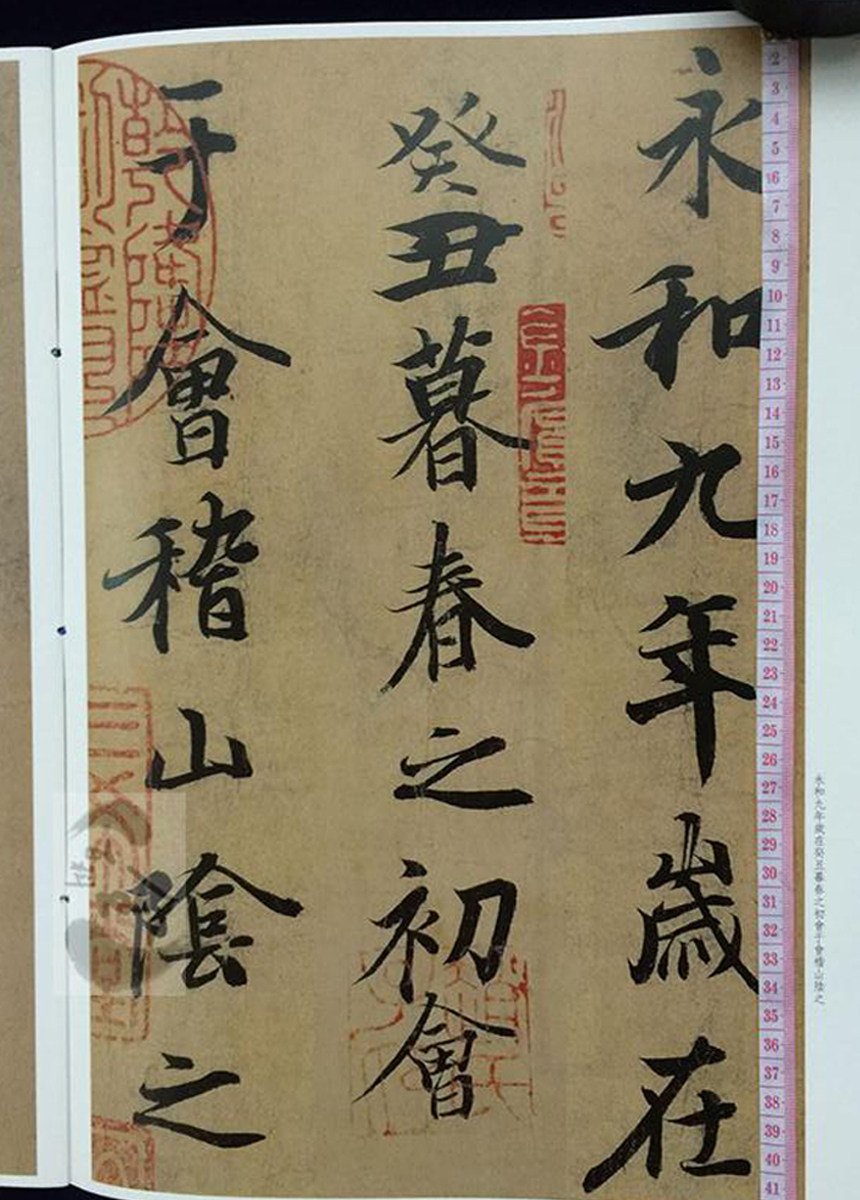 永和九年歲在
癸丑暮春之初會
于會稽山陰之
永和九年歲在癸丑暮春之初會于會稽山陰之
2
3
4
5
6
7
8
9
10
11
12
13
14
15
16
17
18
19
20
21
22
23
24
25
26
27
28
29
30
31
32
33
34
35
36
37
38
39
40
41